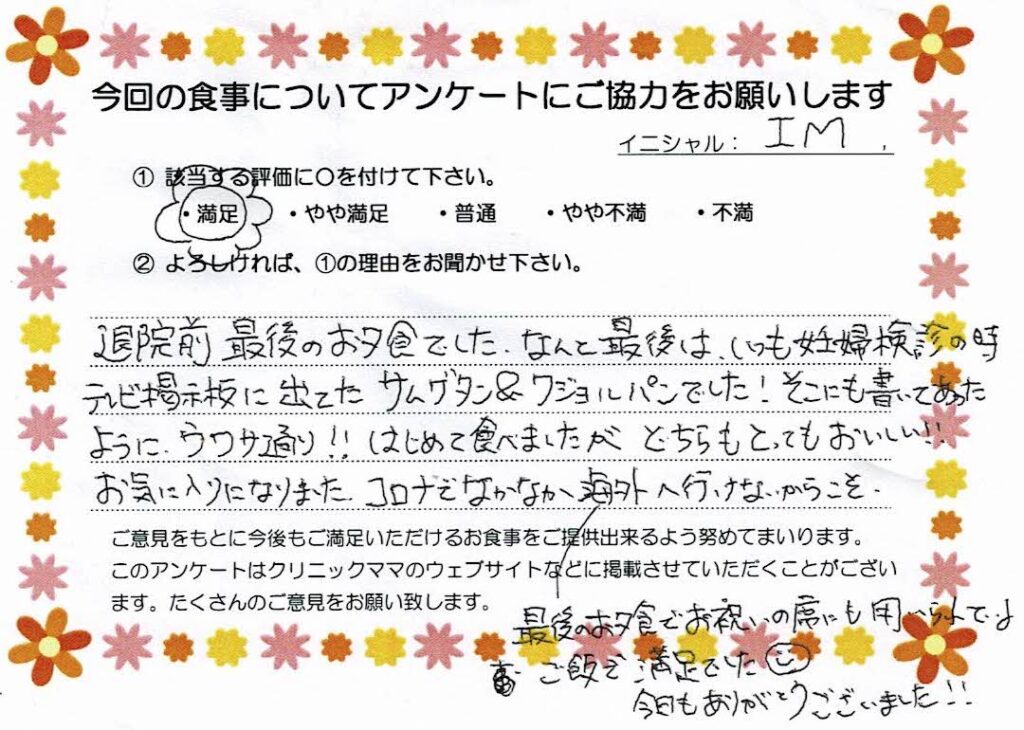 今回の食事についてアンケートにご協力をお願いします
イニシャル： IM
① 該当する評価に○を付けて下さい。
・満足 ・やや満足 ・普通 ・やや不満 ・不満
② よろしければ、①の理由をお聞かせ下さい。
退院前 最後のお夕食でした。なんと最後は、いつも妊婦検診の時
テレビ掲示板に出てた サムゲタン&ワジョルパンでした！そこにも書いてあった
ように、ウワサ通り!! はじめて食べましたが どちらもとってもおいしい!!
お気に入りになりました。コロナでなかなか海外へ行けないからこそ、
ご意見をもとに今後もご満足いただけるお食事をご提供出来るよう努めてまいります。
このアンケートはクリニックママのウェブサイトなどに掲載させていただくことがござい
ます。たくさんのご意見をお願い致します。
最後のお夕食でお祝いの席にも用いられて
ご飯で満足でした
今日もありがとうございました!!